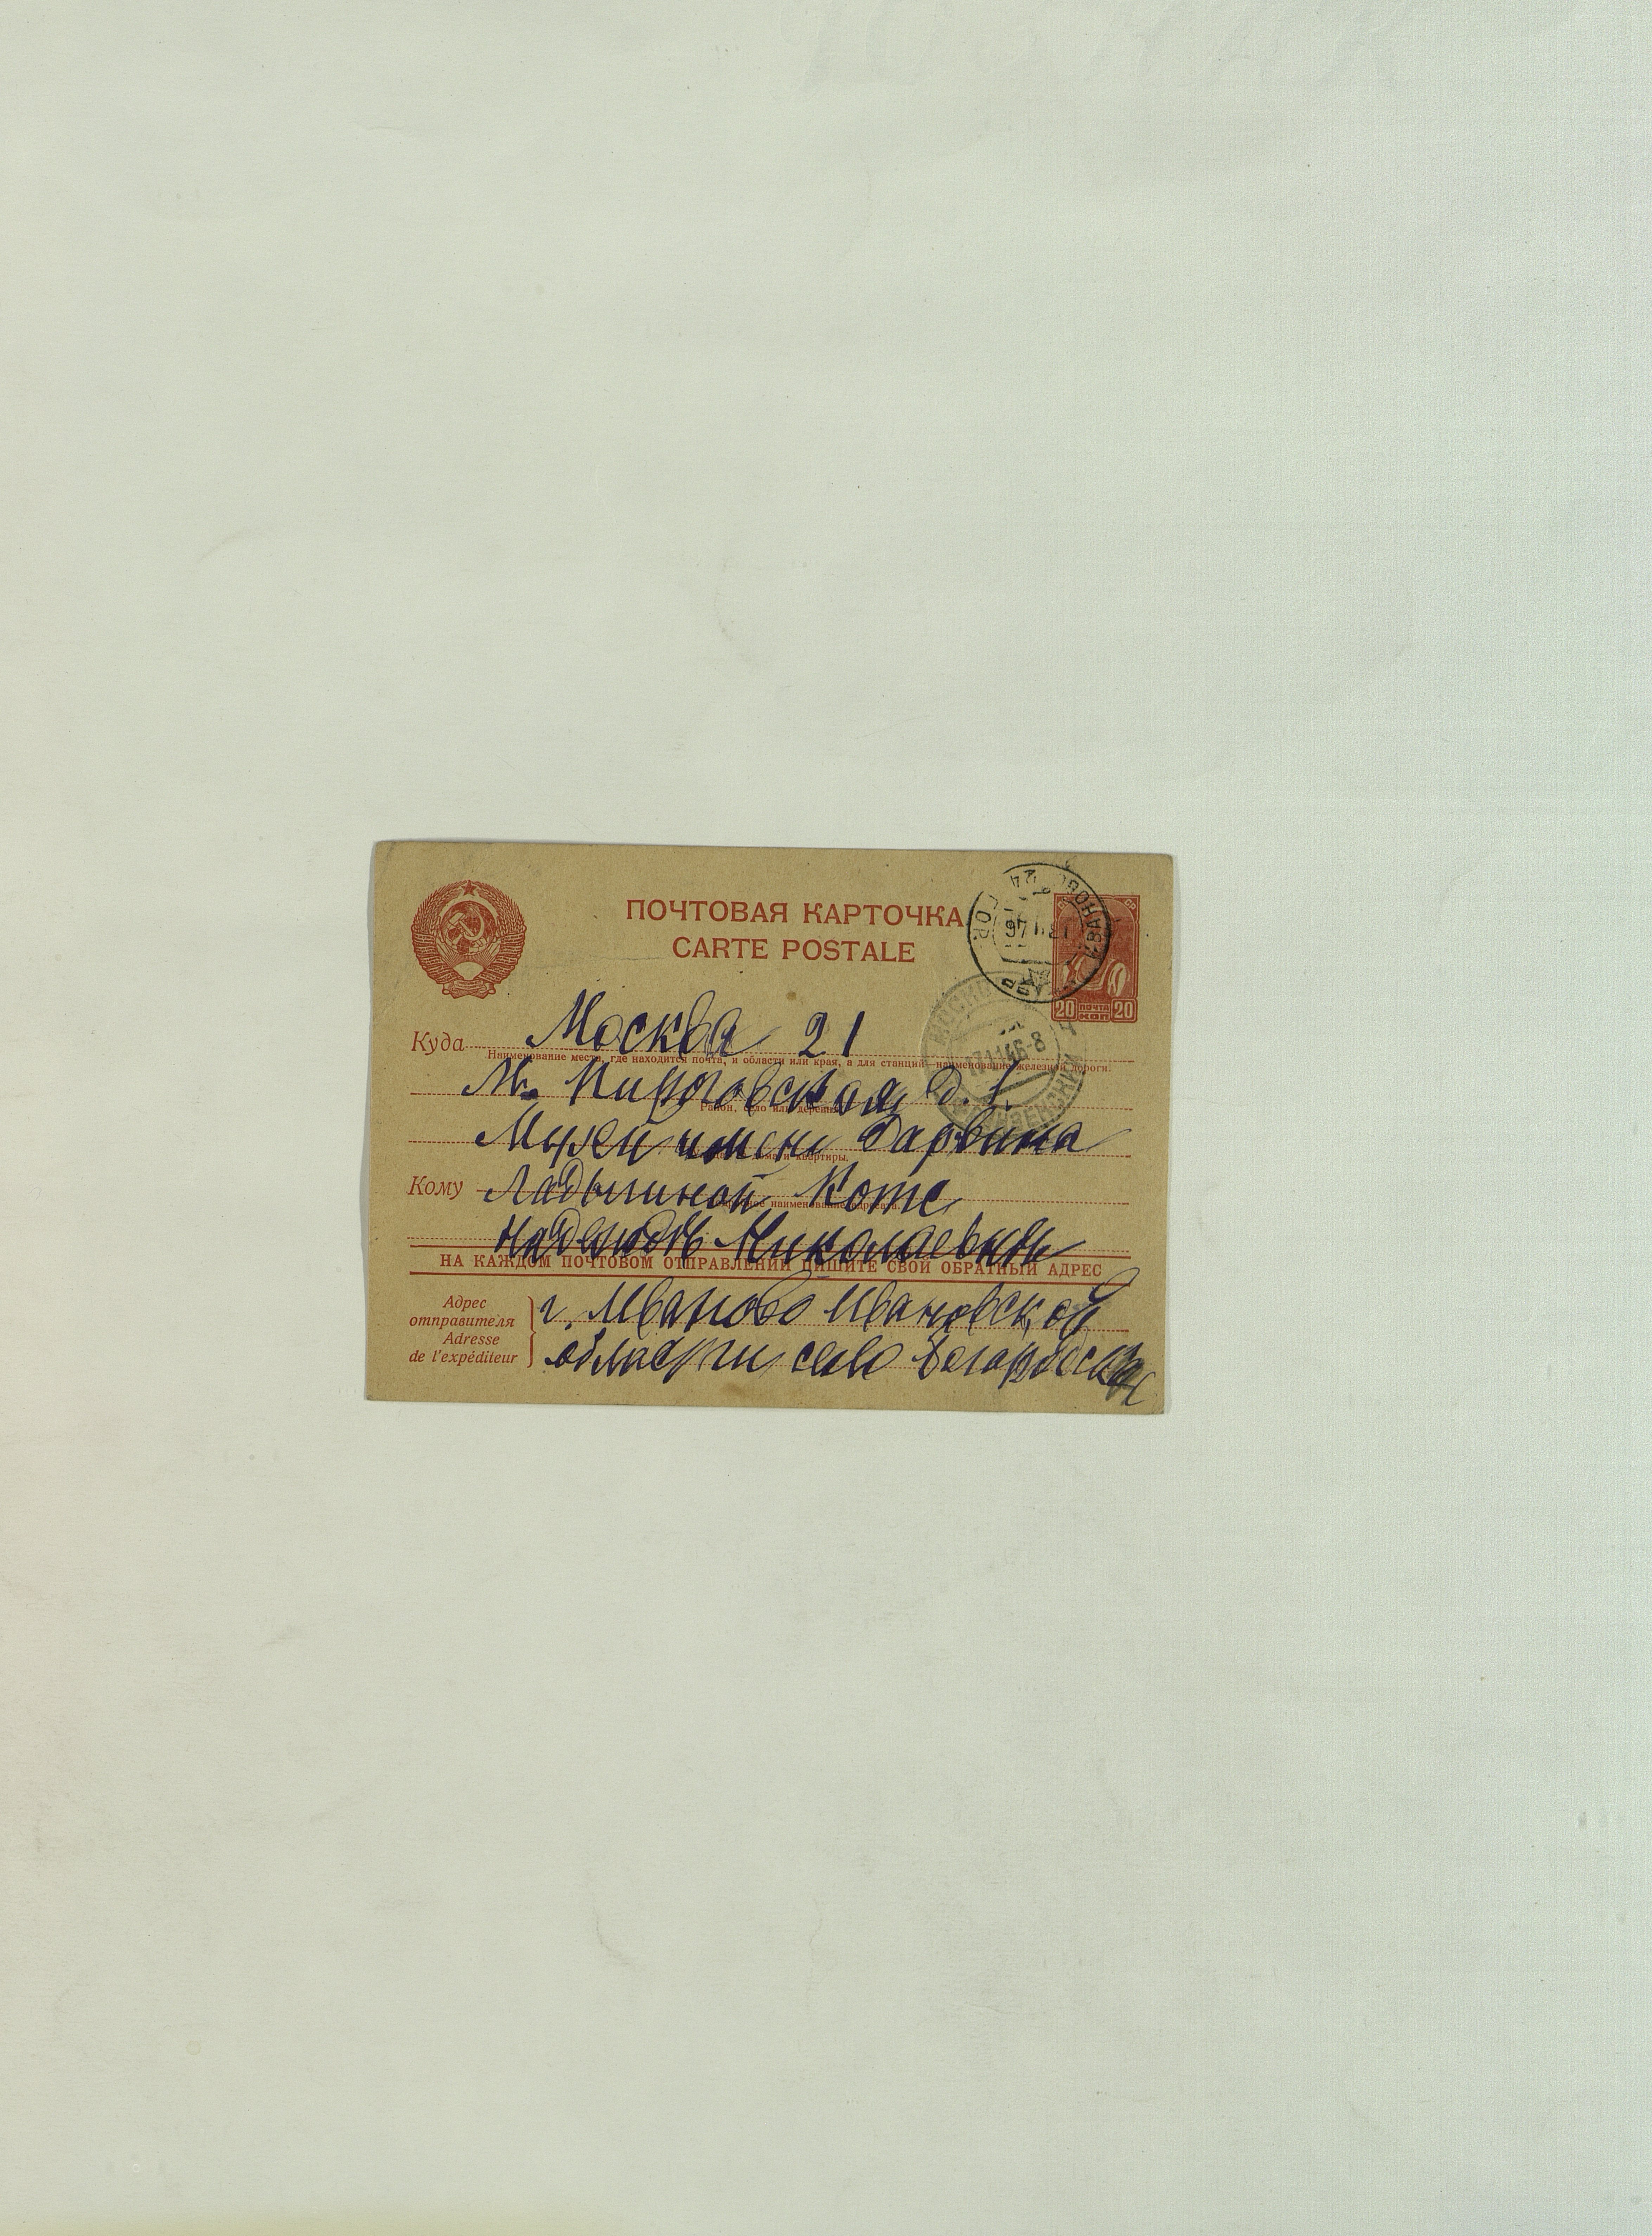 ПОЧТОВАЯ КАРТОЧКА
CARTE POSTALE
20 ПОЧТА КОП 20
Куда Москва 21
Наименование места, где находится почта, и области или края, а для станций—наименование железной дороги.
М. Пироговская д. 1.
Район, село или деревня
Музей имени Дарвина
дома и квартиры.
Кому Ладыгиной Котс
наименование адресата.
Надежде Николаевне
НА КАЖДОМ ПОЧТОВОМ ОТПРАВЛЕНИИ ПИШИТЕ СВОЙ ОБРАТНЫЙ АДРЕС
Адрес отправителя
Adresse de l'expéditeur
г. Иваново Ивановской
области село